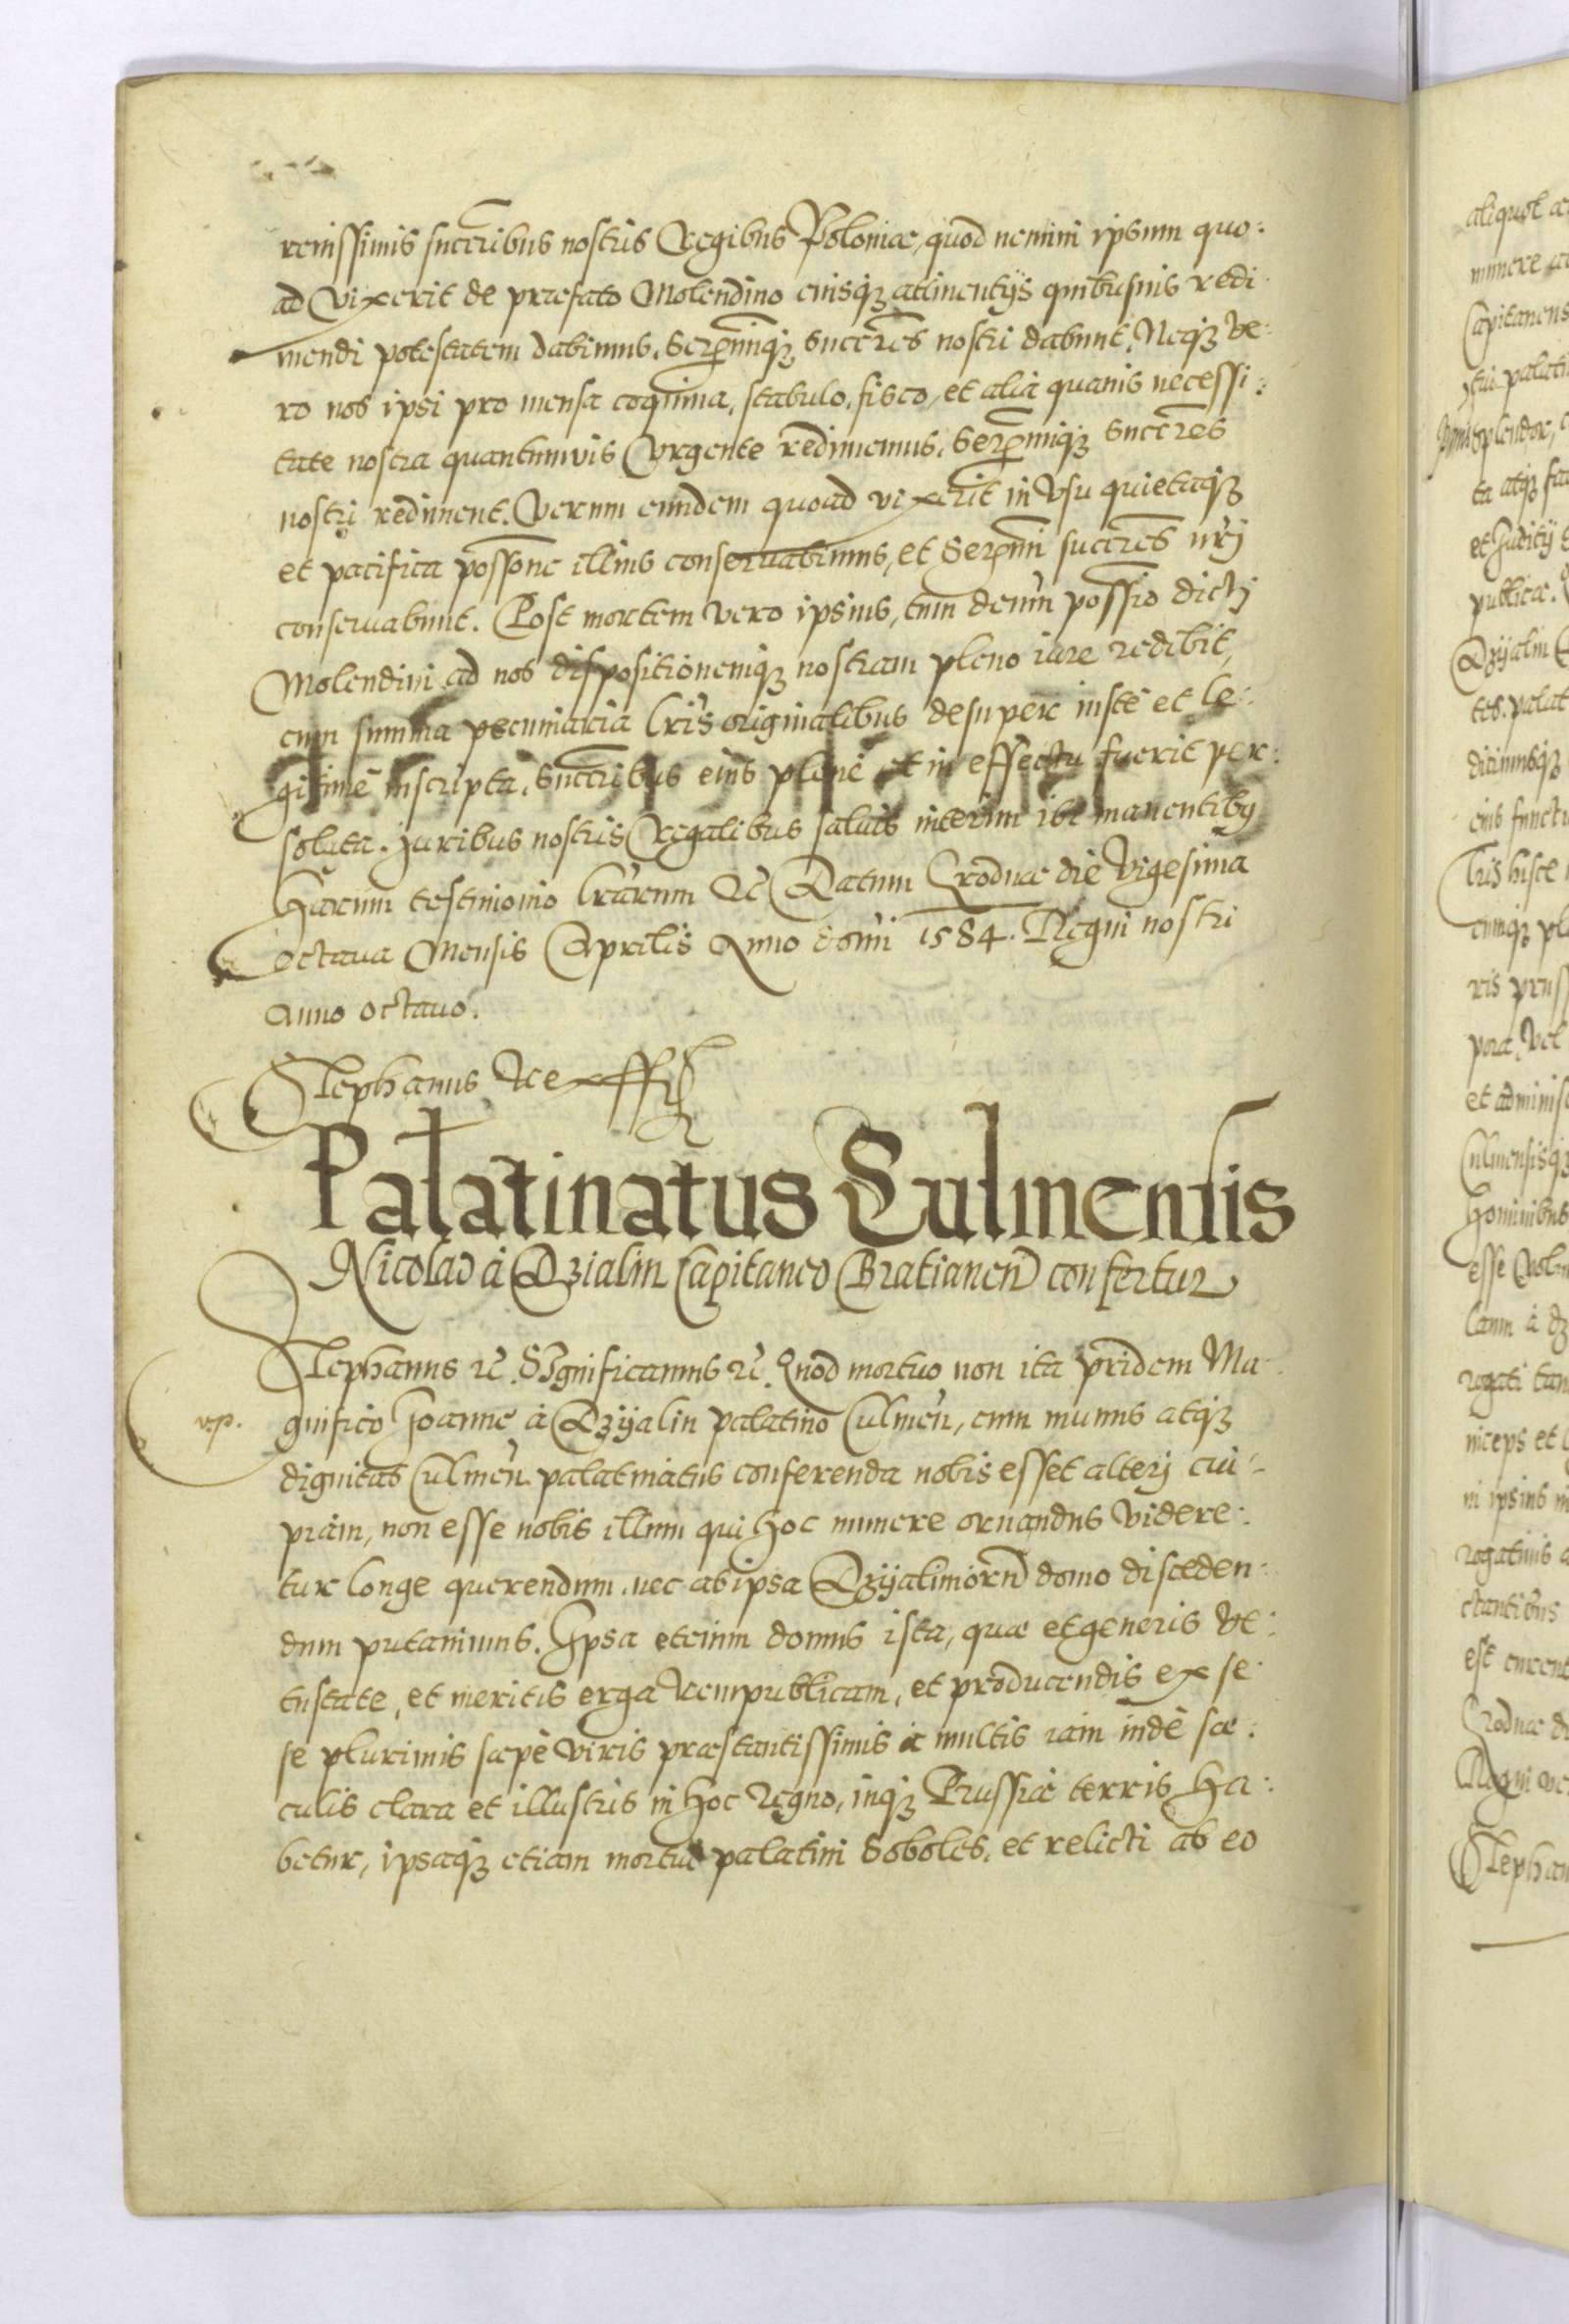 renissimis succribus nostris Regibus Poloniae, quod nemini ipsum quo:
ad vixerit de praefato Molendino eiusq3 attinentÿs quibusuis redi
mendi potestatem dabimus, Serenmiq3 succres nostri dabunt. Neq3 ve:
ro nos ipsi pro mensa coquina, stabulo, fisco, et alia quauis necessi:
tate nostra quantumuis vrgente redimemus, Serenmiq3 succres
nostri rediment. Verum eundem quoad vixerit in vsu quietaq3
et pacifica possone illius conseruabimus, et Serenmi succres nrj
conseruabunt. Post mortem vero ipsius, tum demum possio dictj
Molendini ad nos dispositionemq3 nostram pleno iure redibit,
cum summa pecuniaria lris originalibus desuper iuste et le:
gitime inscripta, succribus eius plene et in effectu fuerit per:
soluta. Juribus nostris Regalibus saluis interim ibi manentibus
Harum testimonio lrarum etc Datum Grodnae die vigesima
octaua Mensis Aprilis Anno domi 1584. Regni nostri
anno octauo.
Stephanus Rex ssst
Palatinatus Culmensis
Nicolao à Dzialin Capitaneo Bratianen confertur
Stephanus etc. Significamus etc. Quod mortuo non ita pridem Ma
gnifico Joanne à Dzÿalin palatino Culmen, cum munus atq3
dignitas Culmen palatinatus conferenda nobis esset alterj cui:
piam, non esse nobis illum qui hoc munere ornandus videre:
tur longe querendum, nec ab ipsa Dzÿaliniorum domo disceden:
dum putauimus. Ipsa etenim domus ista, quae et generis ve:
tustate, et meritis erga Rempublicam, et producendis ex se:
se plurimis saepè viris praestantissimis à multis iam indè sae:
culis clara et illustris in hoc regno, inq3 Prussiae terris ha:
betur, ipsaq3 etiam mortui palatini soboles, et relicti ab eo